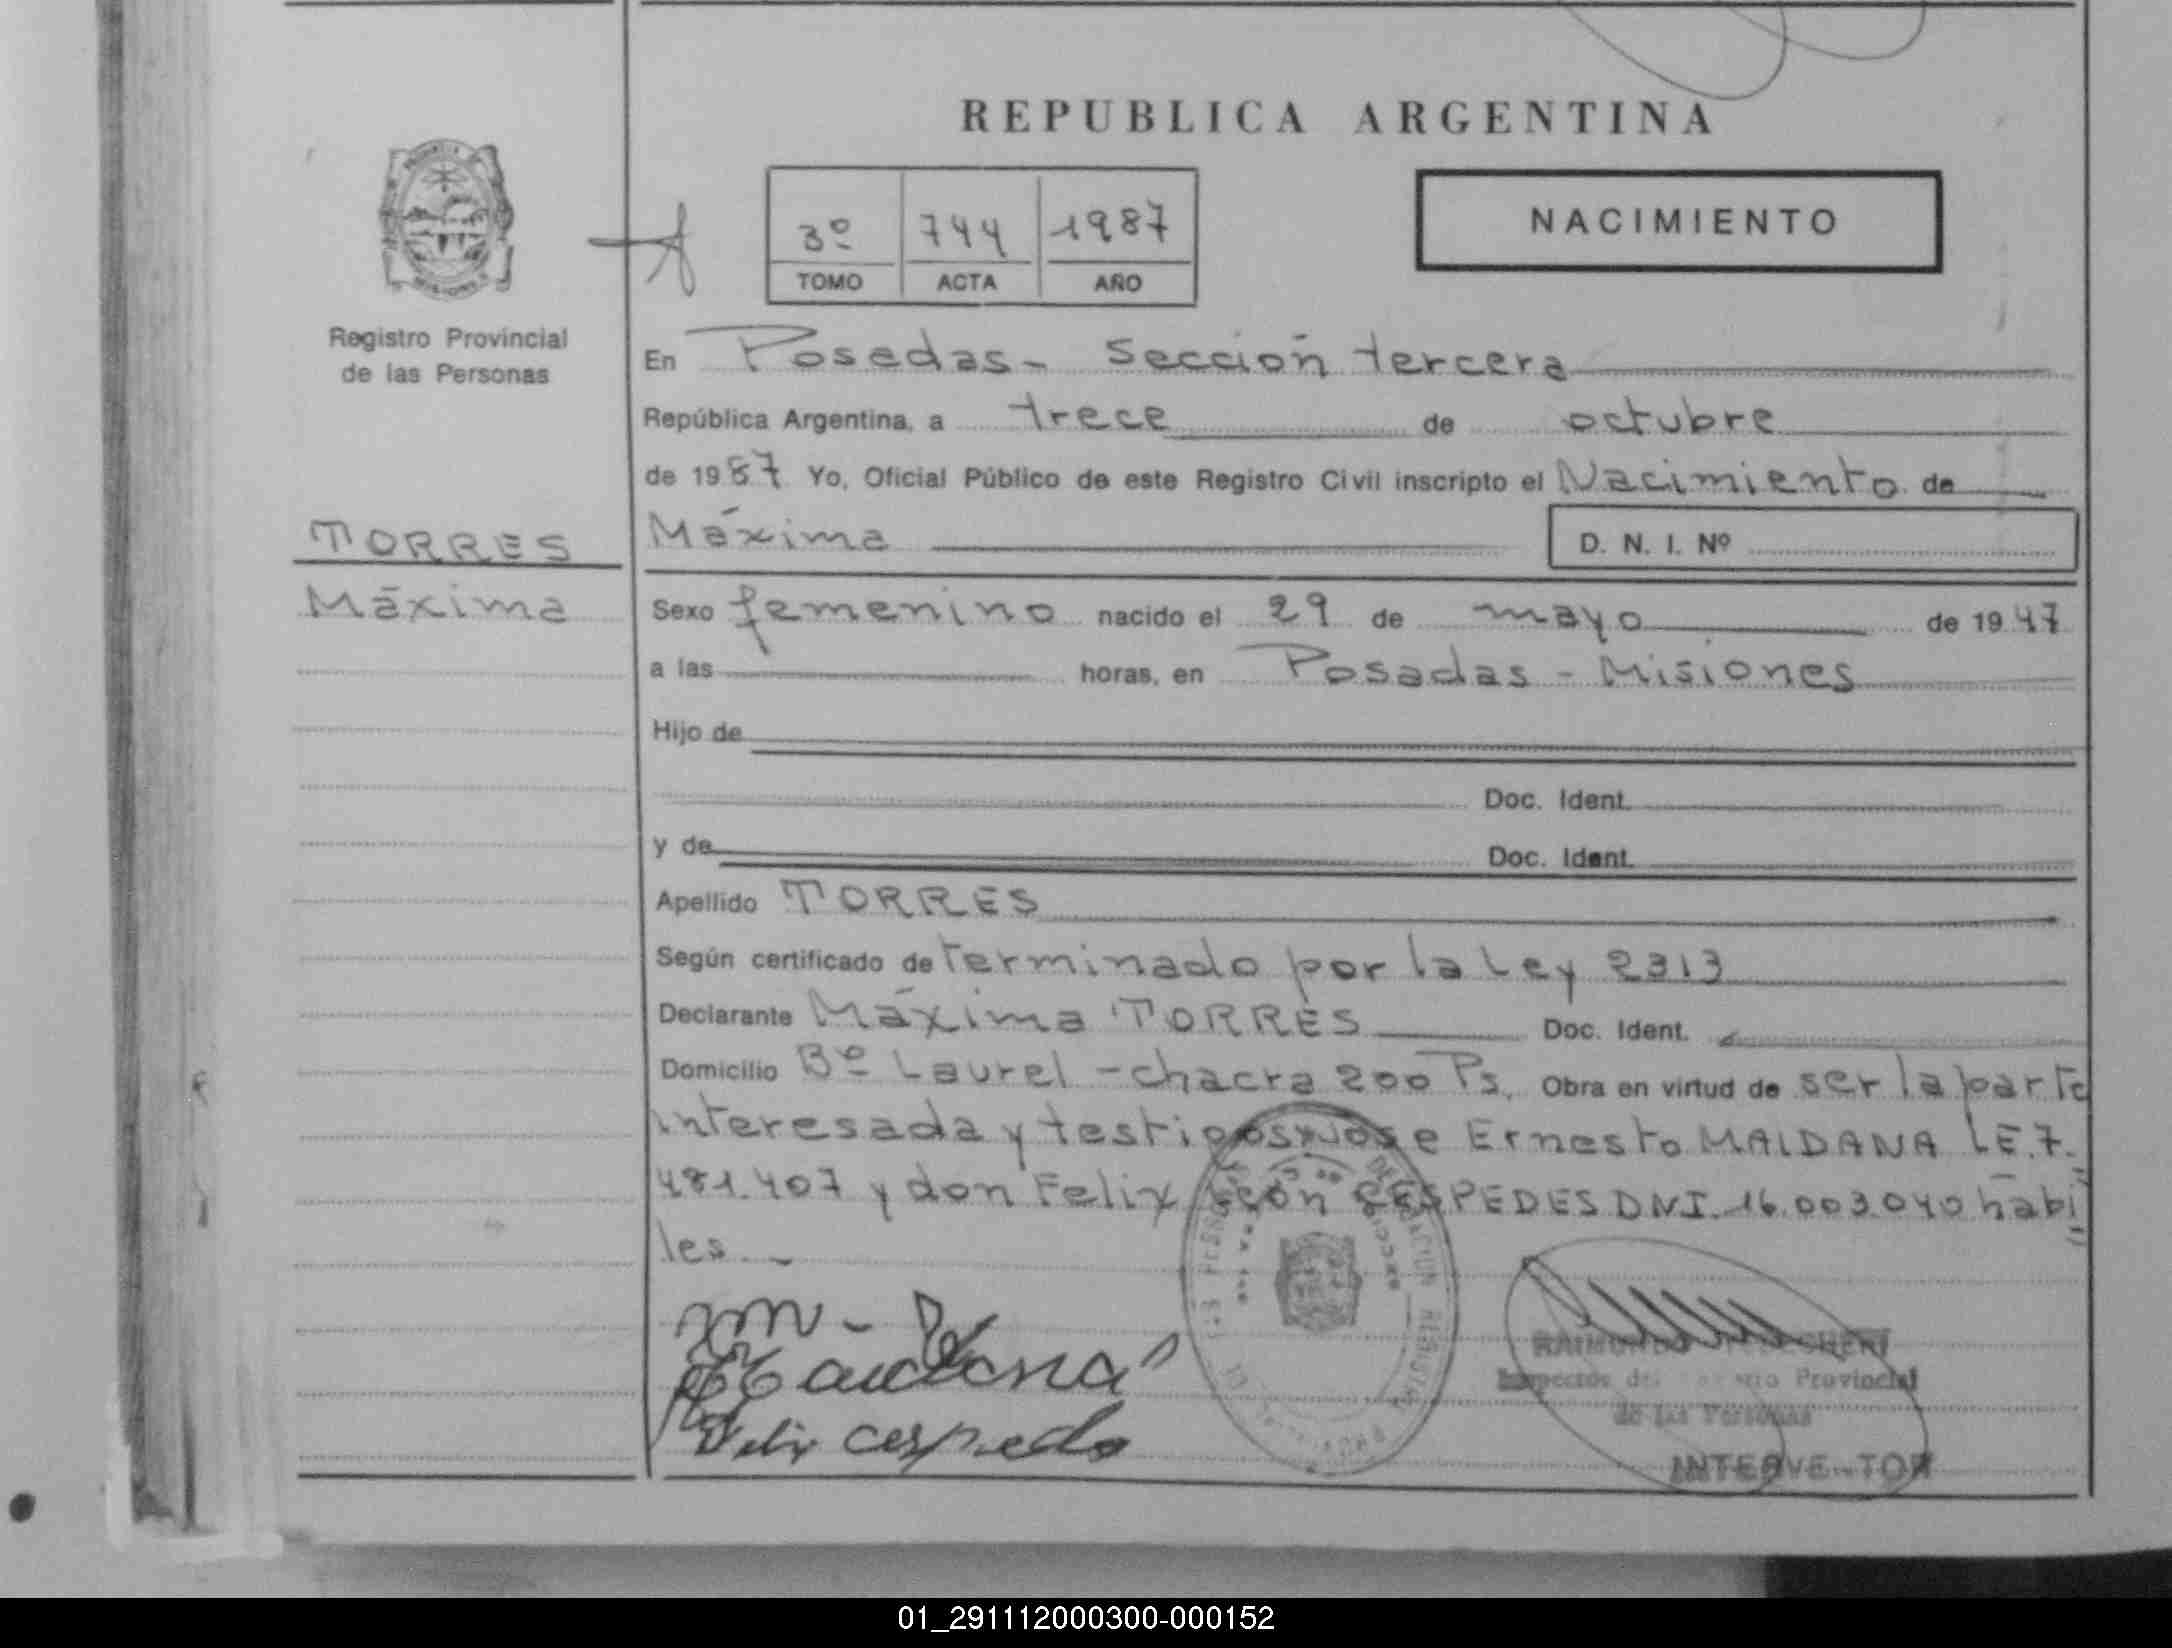 REPUBLICA ARGENTINA
3º 744 1987
TOMO ACTA AÑO
NACIMIENTO
Registro Provincial
de las Personas
En Posadas - Sección tercera
República Argentina, a trece de octubre
de 1987 Yo, Oficial Público de este Registro Civil inscripto el Nacimiento de
TORRES
Máxima
Máxima D. N. I. Nº
Sexo femenino nacido el 29 de mayo de 1947
a las horas, en Posadas - Misiones
Hijo de
Doc. Ident.
y de Doc. Ident.
Apellido TORRES
Según certificado de terminado por la Ley 2313
Declarante Máxima TORRES Doc. Ident.
Domicilio Bº Laurel - chacra 200 Ps. Obra en virtud de ser la parte
interesada y testigos Jose Ernesto MAIDANA LE. 7.
481.407 y don Felix León CESPEDES DNI. 16.003.040 hábi
les.-
Felix cespede
Inspector del Provincial
de las Personas
INTERVE TOR
01_291112000300-000152